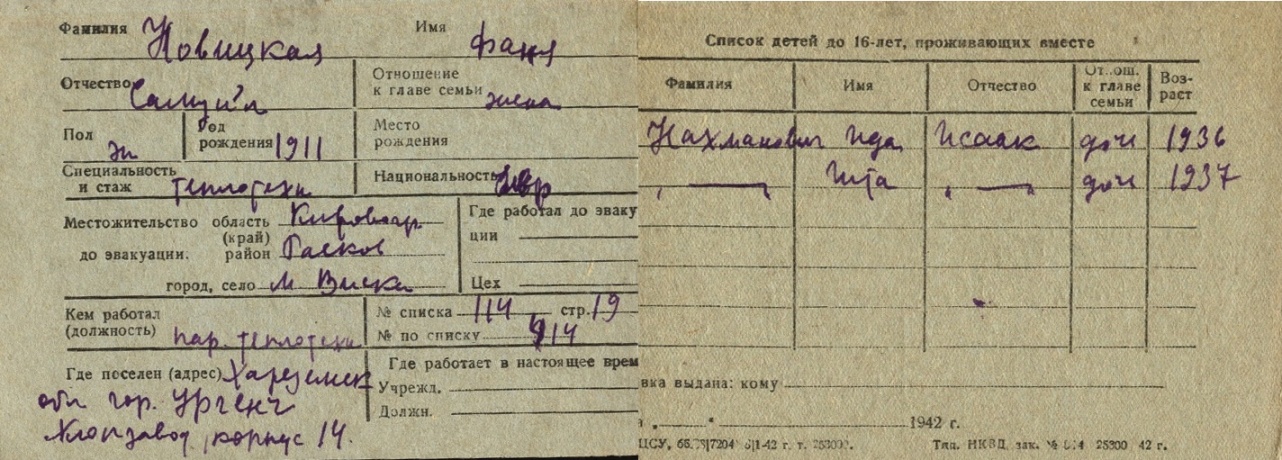 Фамилия Новицкая Имя Фаня
Отчество Самуил Отношение к главе семьи жена
Пол ж Год рождения 1911 Место рождения
Специальность и стаж теплотехн Национальность евр
Местожительство до эвакуации: область (край) Кировогр
район
город, село М Виска
Где работал до эваку
ции
Цех
Кем работал (должность) теплотехн
№ списка 114 стр. 19
№ по списку 914
Где поселен (адрес) Харезмск
обл гор. Ургенч
Хлопзавод, корпус 14.
Где работает в настоящее врем
Учрежд.
Должн.
Список детей до 16-лет, проживающих вместе
Фамилия Имя Отчество Отнош. к главе семьи Воз-
раст
Нахманович Ида Исаак дочь 1936
„ — „ „ — „ дочь 1937
вка выдана: кому
„ “ 1942 г.
Тип. НКВД, зак. № 25300 42 г.